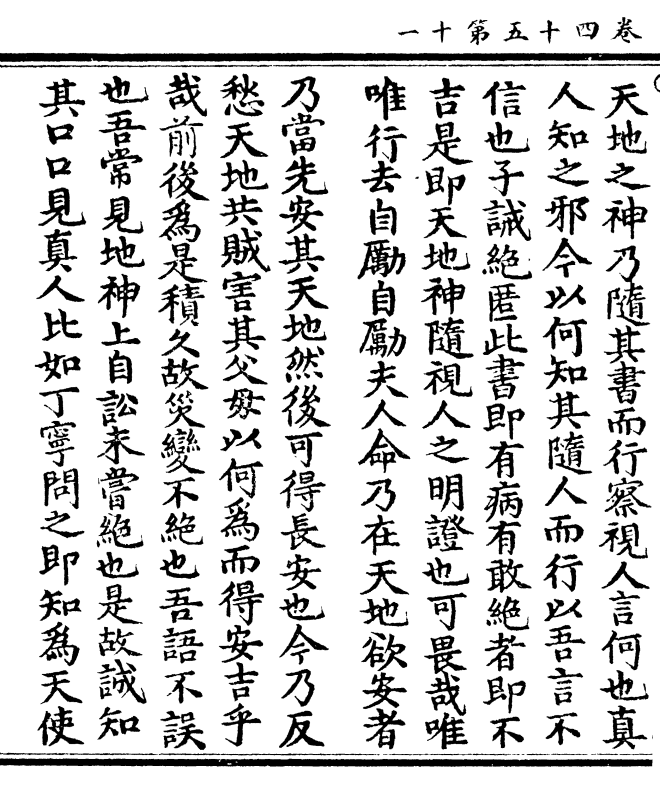 卷四十五第十一
天地之神乃隨其書而行察視人言何也真
人知之邪今以何知其隨人而行以吾言不
信也子誡絕匿此書即有病有敢絕者即不
吉是即天地神隨視人之明證也可畏哉唯
唯行去自勵自勵夫人命乃在天地欲安者
乃當先安其天地然後可得長安也今乃反
愁天地共賊害其父母以何為而得安吉乎
哉前後爲是積久故災變不絕也吾語不誤
也吾常見地神上自訟未嘗絕也是故誠知
其口口見真人比如丁寧問之即知爲天使